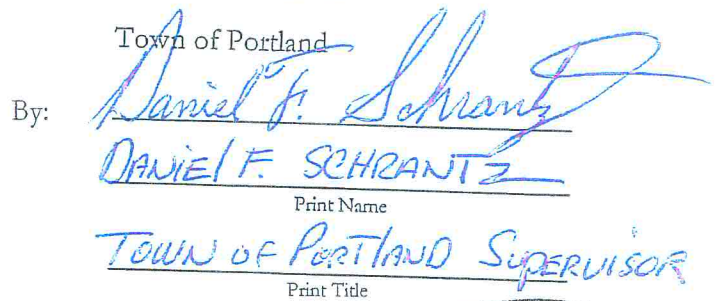 Town of Portland
By: Daniel F. Schrantz
DANIEl F. SCHRANTZ
Print Name
TOWN OF PORTlAND SUPERVISOR
Print Title